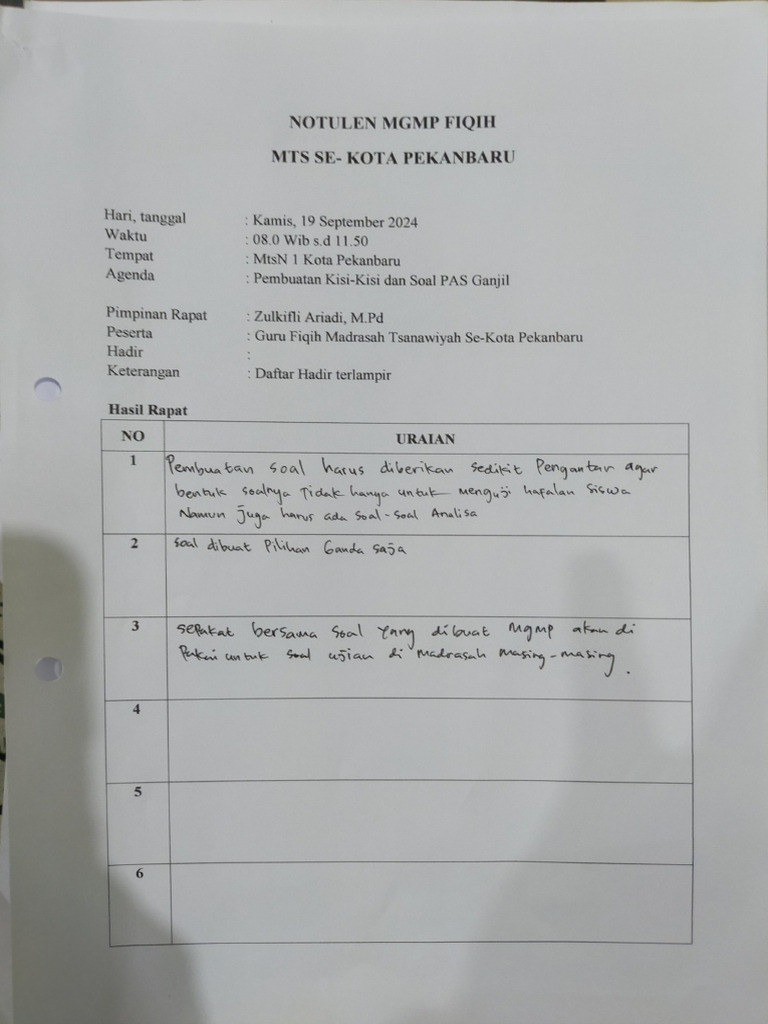 NOTULEN MGMP FIQIH
MTS SE- KOTA PEKANBARU
Hari, tanggal : Kamis, 19 September 2024
Waktu : 08.0 Wib s.d 11.50
Tempat : MtsN 1 Kota Pekanbaru
Agenda : Pembuatan Kisi-Kisi dan Soal PAS Ganjil
Pimpinan Rapat : Zulkifli Ariadi, M.Pd
Peserta : Guru Fiqih Madrasah Tsanawiyah Se-Kota Pekanbaru
Hadir :
Keterangan : Daftar Hadir terlampir
Hasil Rapat
NO URAIAN
1 Pembuatan soal harus diberikan sedikit Pengantar agar
bentuk soalnya Tidak hanya untuk menguji hafalan siswa
Namun juga harus ada soal-soal Analisa
2 soal dibuat Pilihan Ganda saja
3 sepakat bersama soal yang dibuat MGMP akan di
Pakai untuk soal ujian di Madrasah Masing-masing.
4
5
6